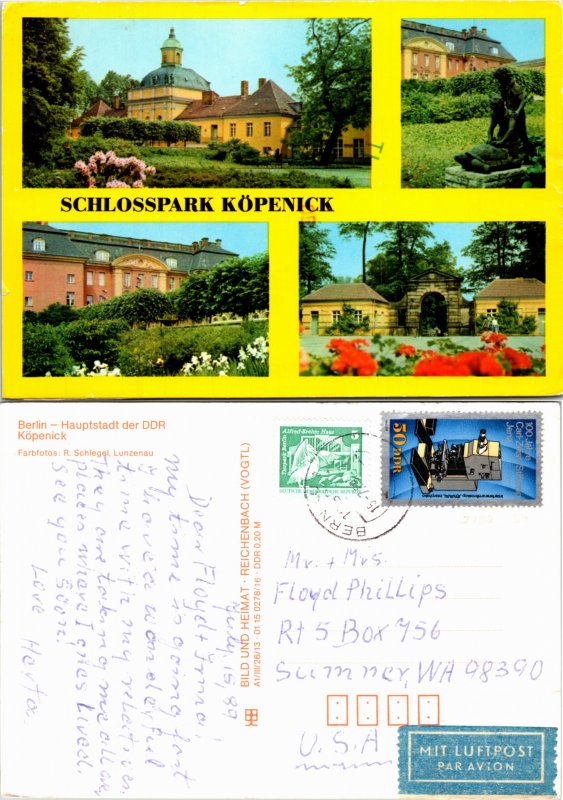 SCHLOSSPARK KÖPENICK
Berlin – Hauptstadt der DDR
Köpenick
Farbfotos: R. Schlegel, Lunzenau
July 15, 89
Dear Floyd + Irma,
my time is going fast
I have a wonderful
time with my relatives.
They are taking me all over
places where I ones lived.
See you soon!
Love Herta.
BILD UND HEIMAT · REICHENBACH (VOGTL)
A1/III/26/13 · 01 15 0278/16 · DDR 0,20 M
Alfred-Brehm-Haus
Tierpark Berlin
5
DEUTSCHE DEMOKRATISCHE REPUBLIK
50 DDR
100 Jahre
Carl-Zeiss-
Jena
BERLIN
Mr. + Mrs.
Floyd Phillips
Rt 5 Box 756
Sumner, WA 98390
U.S.A
MIT LUFTPOST
PAR AVION